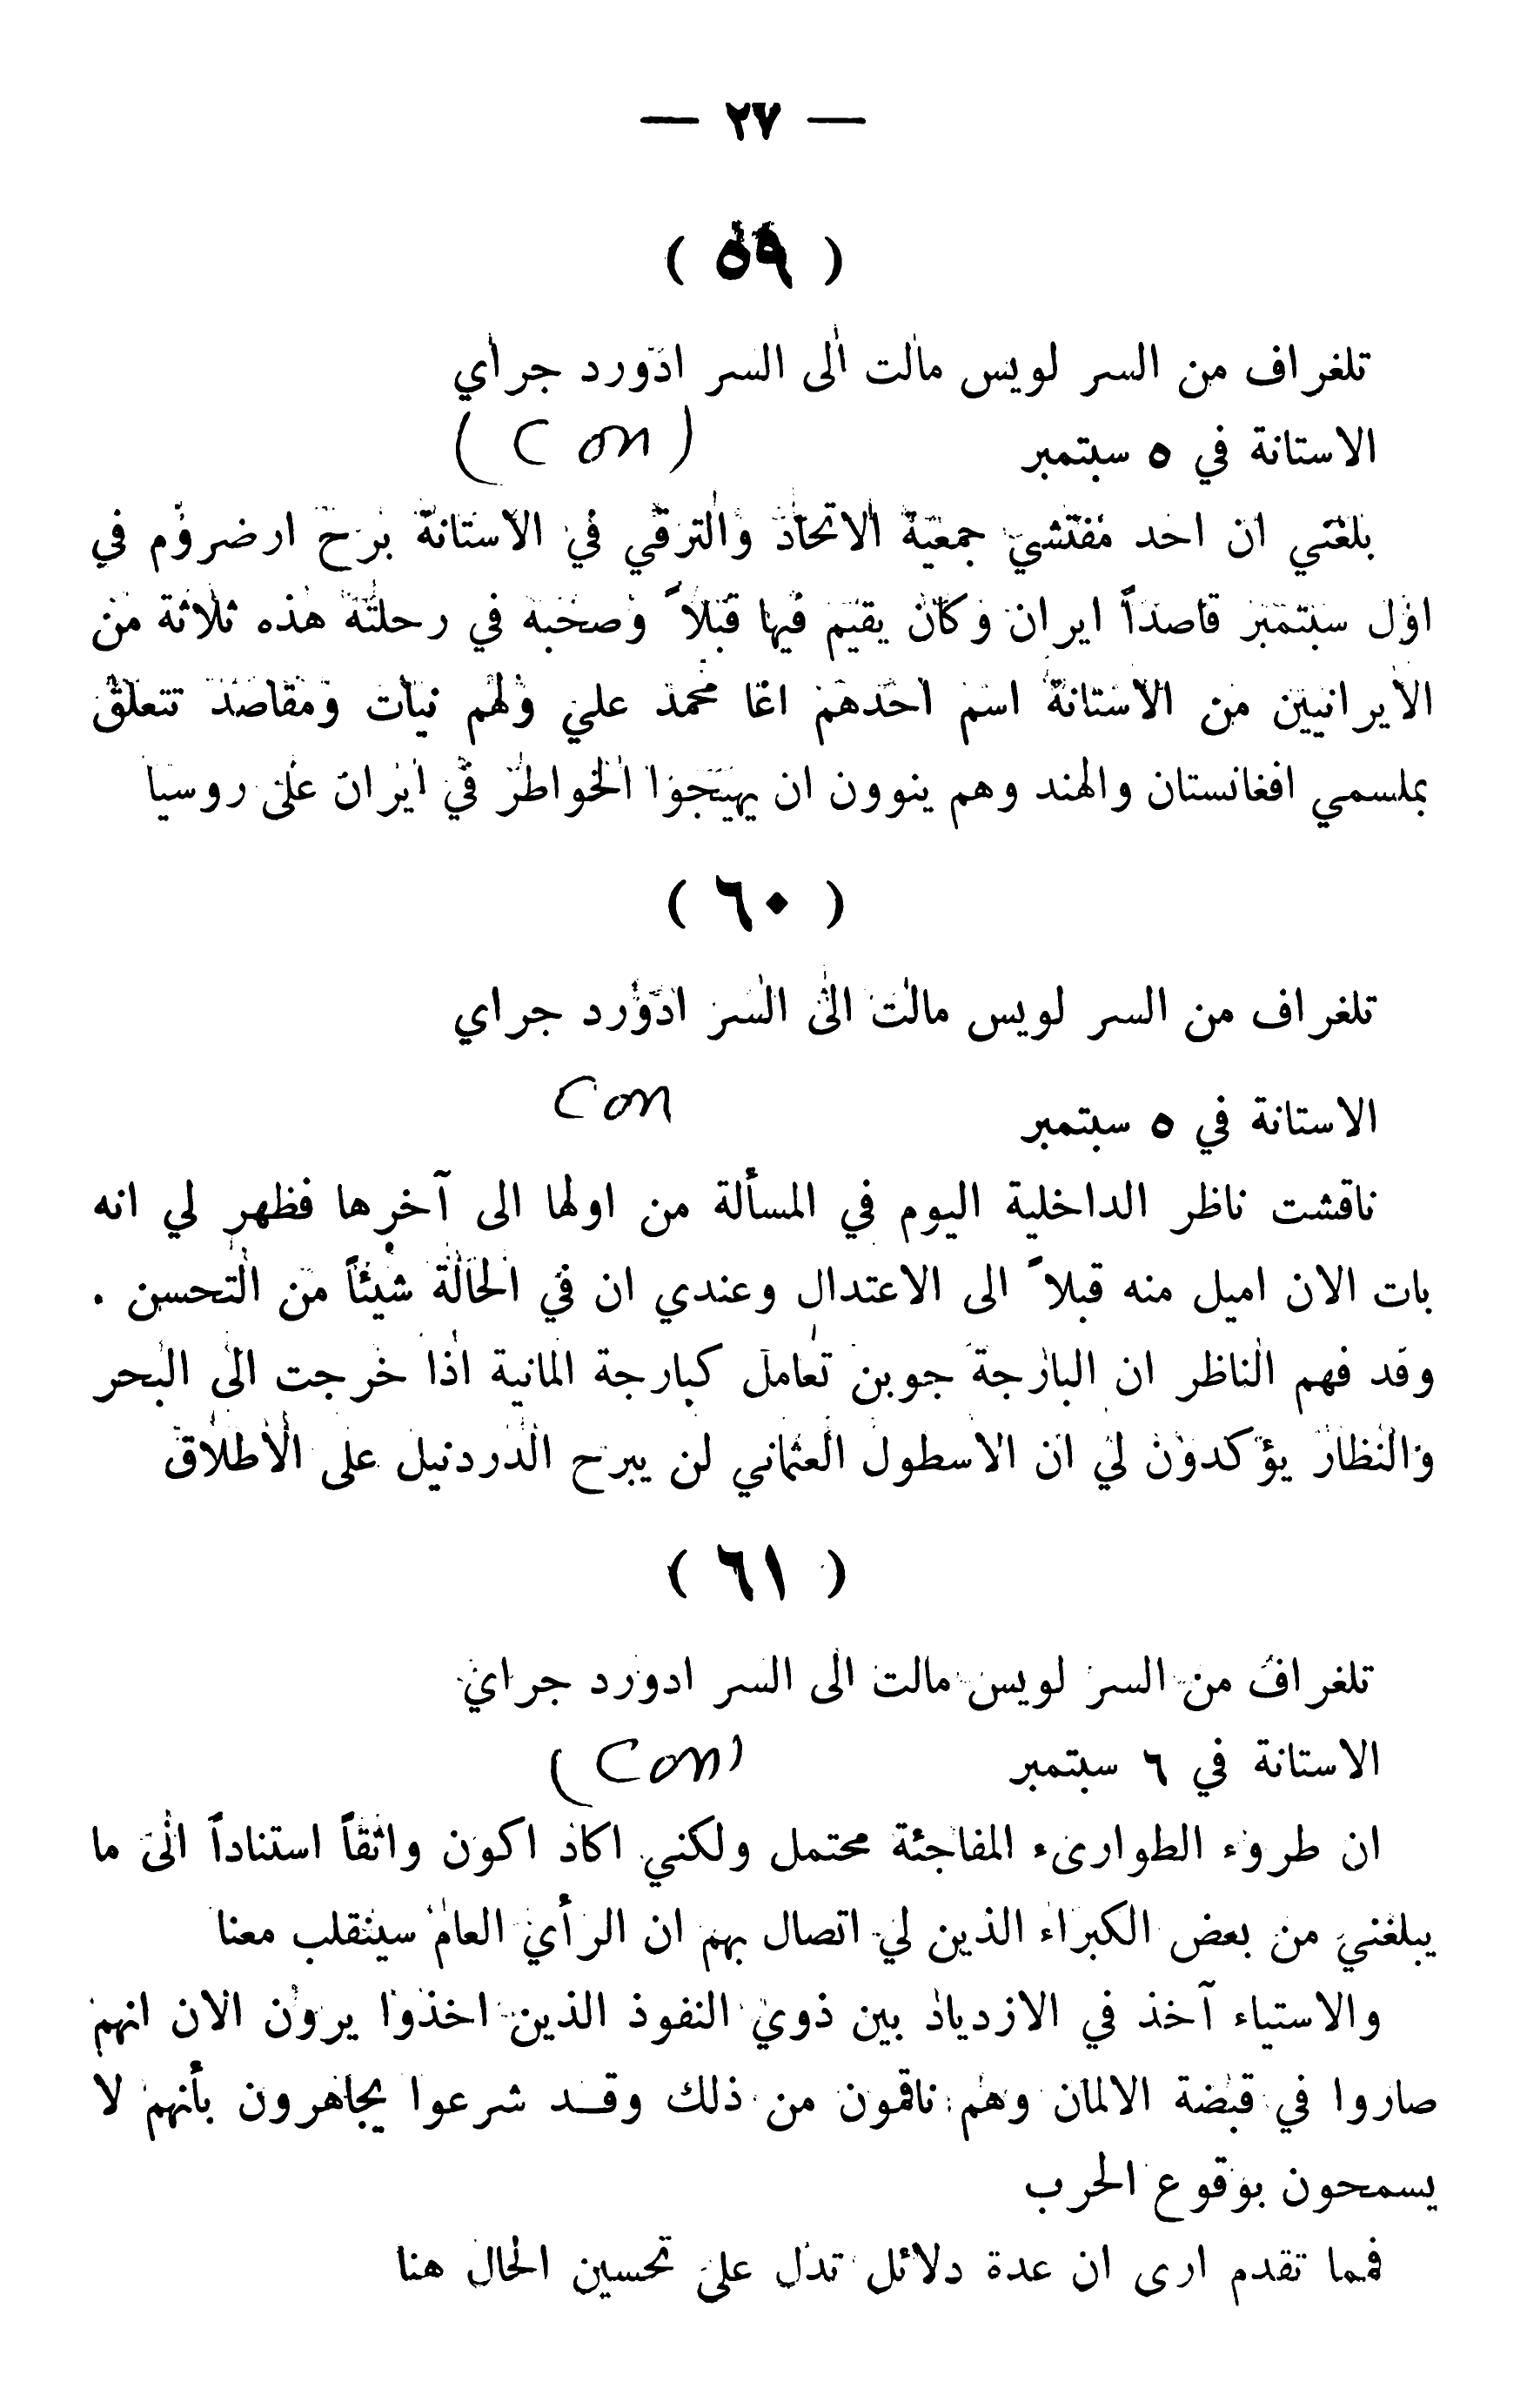 — ٢٧ —
( ٥٩ )
تلغراف من السر لويس مالت الى السر ادورد جراي
الاستانة في ٥ سبتمبر (Con)
بلغني ان احد مفتشي جمعية الاتحاد والترقي في الاستانة برح ارضروم في
اول سبتمبر قاصداً ايران وكان يقيم فيها قبلاً وصحبه في رحلته هذه ثلاثة من
الايرانيين من الاستانة اسم احدهم اغا محمد علي ولهم نيات ومقاصد تتعلق
بملسمي افغانستان والهند وهم ينوون ان يهيجوا الخواطر في ايران على روسيا
( ٦٠ )
تلغراف من السر لويس مالت الى السر ادورد جراي
الاستانة في ٥ سبتمبر Con
ناقشت ناظر الداخلية اليوم في المسألة من اولها الى آخرها فظهر لي انه
بات الان اميل منه قبلاً الى الاعتدال وعندي ان في الحالة شيئاً من التحسن .
وقد فهم الناظر ان البارجة جوبن تعامل كبارجة المانية اذا خرجت الى البحر
والنظار يؤكدون لي ان الاسطول العثماني لن يبرح الدردنيل على الاطلاق
( ٦١ )
تلغراف من السر لويس مالت الى السر ادورد جراي
الاستانة في ٦ سبتمبر (Con)
ان طروء الطوارىء المفاجئة محتمل ولكني اكاد اكون واثقاً استناداً الى ما
يبلغني من بعض الكبراء الذين لي اتصال بهم ان الرأي العام سينقلب معنا
والاستياء آخذ في الازدياد بين ذوي النفوذ الذين اخذوا يرون الان انهم
صاروا في قبضة الالمان وهم ناقمون من ذلك وقد شرعوا يجاهرون بأنهم لا
يسمحون بوقوع الحرب
فمما تقدم ارى ان عدة دلائل تدل على تحسين الحال هنا